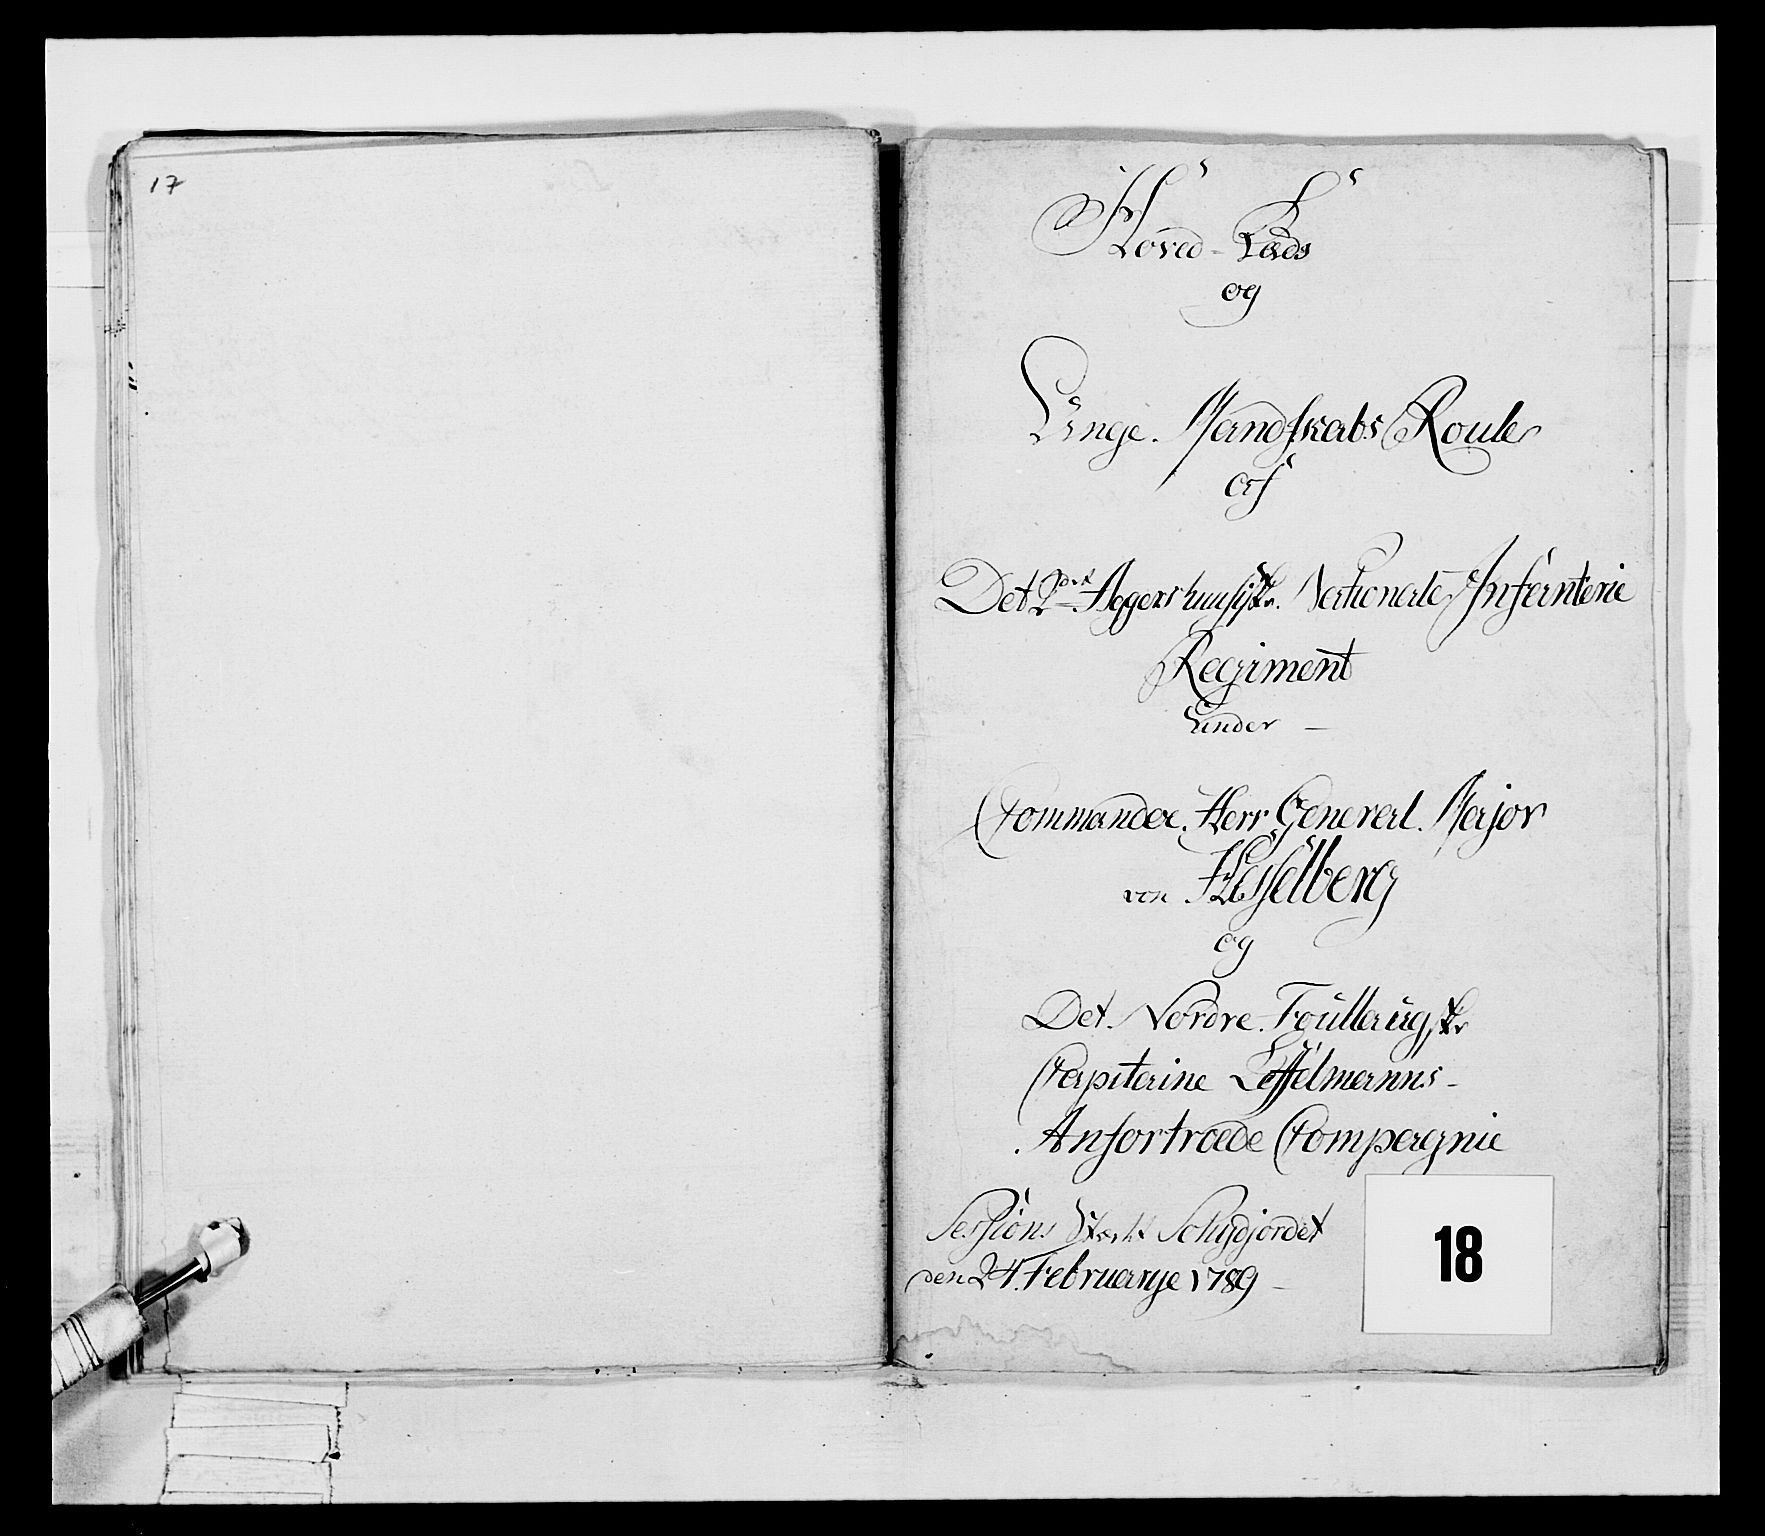 17
Hoved-
og
Unge Mandskabs Roule
af
Det 2det Aggershuusiske Nationale Infanterie
Regiment
Under
Commandee Herr General Major
von Hesselberg
og
Det Nordre Foulloug
Capitaine Leffelmanns
Anfortroede Compagnie
Sessions
den 24 Februarye 1789
18